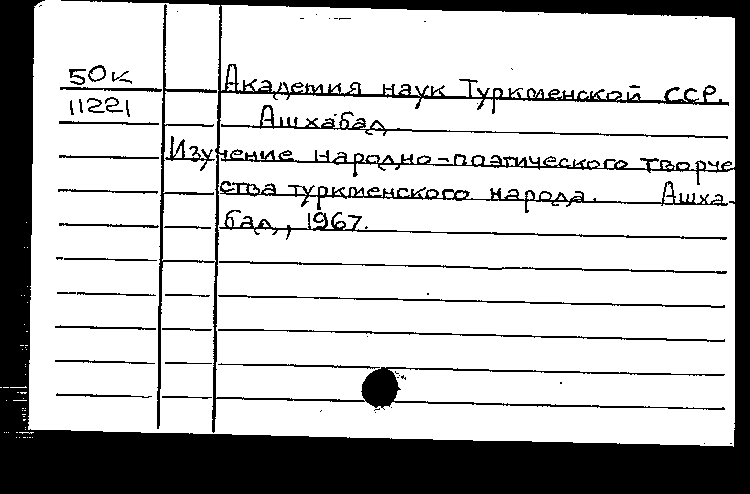 50к
11221
Академия наук Туркменской ССР.
Ашхабад.
Изучение народно-поэтического творче
ства туркменского народа. Ашха-
бад, 1967.